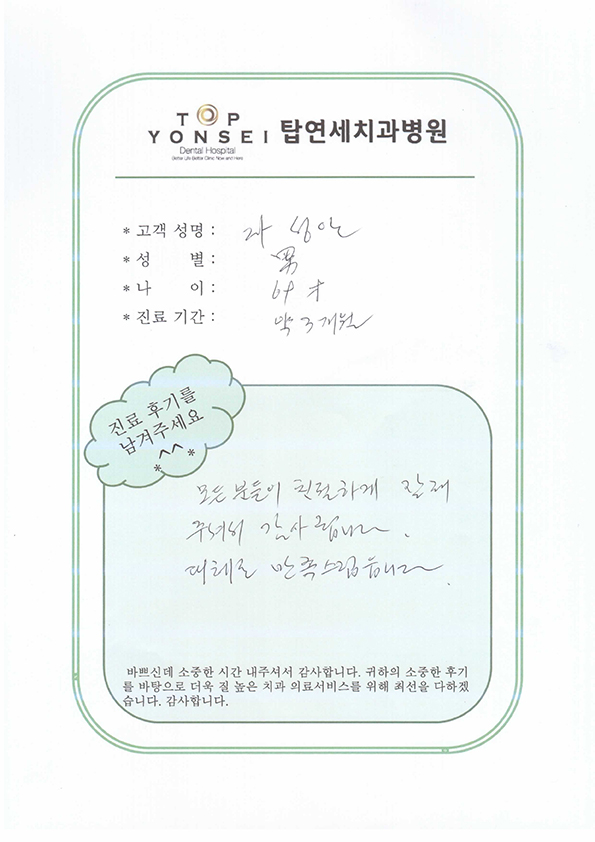 TOP
YONSEI 탑연세치과병원
Dental Hospital
Better Life Better Clinic Now and Here
* 고객 성명 :
* 성 별 : 男
* 나 이 : 69 才
* 진료 기간 : 약 3개월
진료 후기를
남겨주세요
*^^*
모든 분들이 친절하게 잘해
주셔서 감사립니다.
대체로 만족스럽습니다.
바쁘신데 소중한 시간 내주셔서 감사합니다. 귀하의 소중한 후기
를 바탕으로 더욱 질 높은 치과 의료서비스를 위해 최선을 다하겠
습니다. 감사합니다.